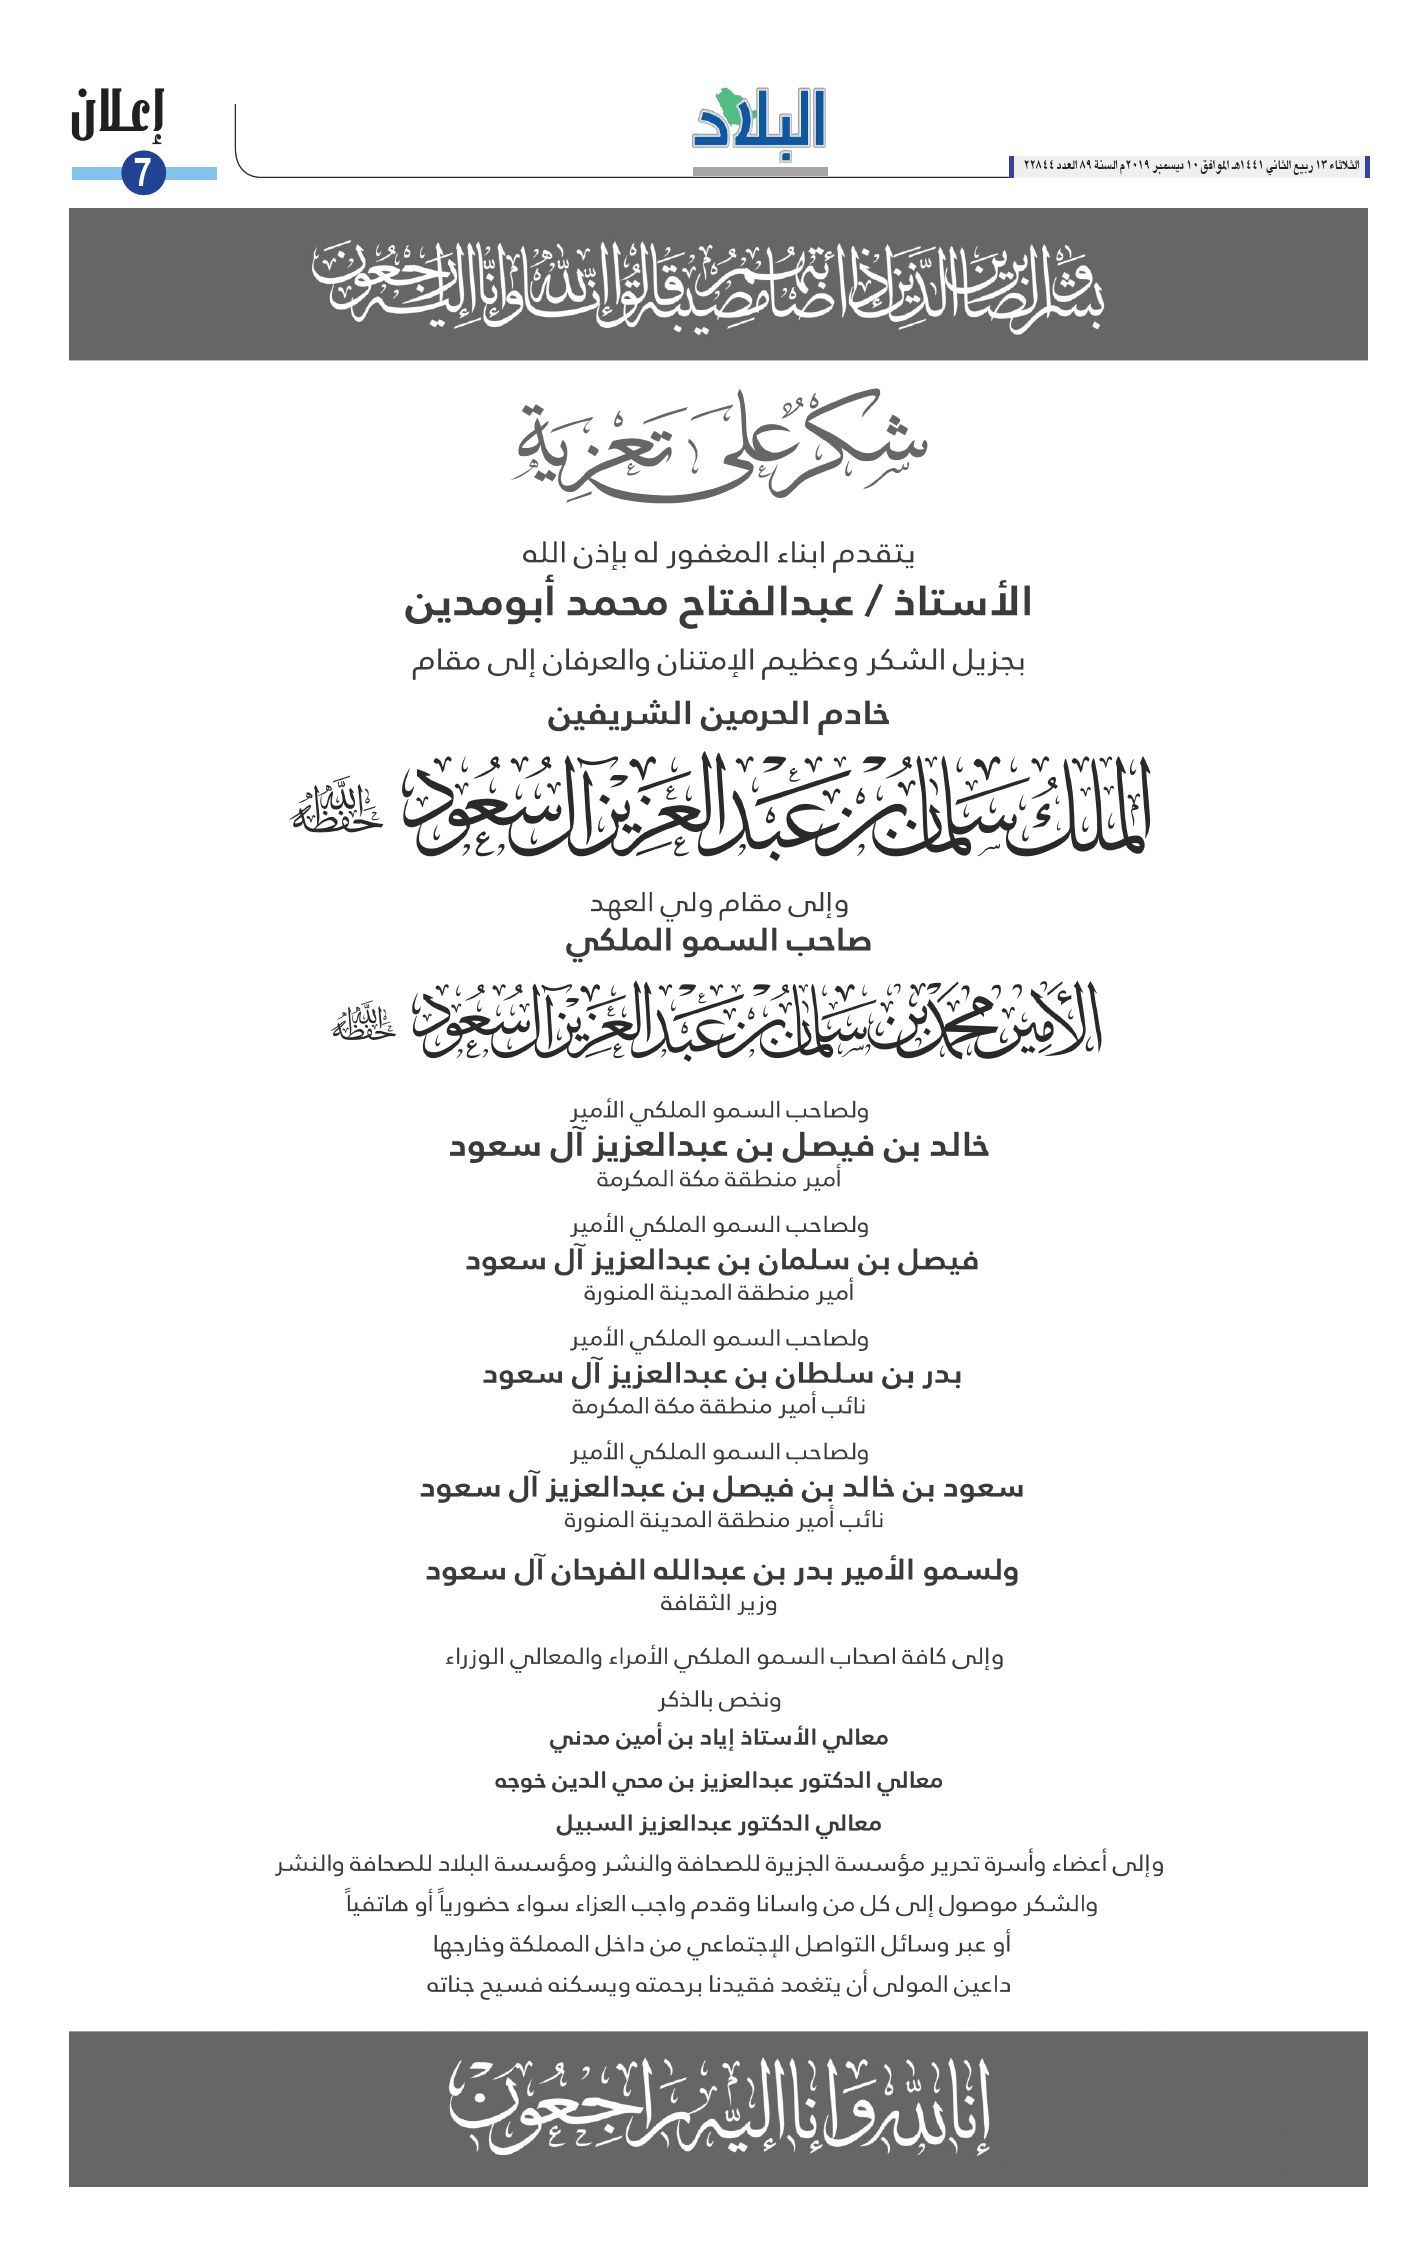 إعلان
7
البلاد
الثلاثاء ١٣ ربيع الثاني ١٤٤١هـ الموافق ١٠ ديسمبر ٢٠١٩م السنة ٨٩ العدد ٢٢٨٤٤
وبشر الصابرين الذين إذا أصابتهم مصيبة قالوا إنا لله وإنا إليه راجعون
شكر على تعزية
يتقدم ابناء المغفور له بإذن الله
الأستاذ / عبدالفتاح محمد أبومدين
بجزيل الشكر وعظيم الإمتنان والعرفان إلى مقام
خادم الحرمين الشريفين
الملك سلمان بن عبد العزيز آل سعود حفظه الله
وإلى مقام ولي العهد
صاحب السمو الملكي
الأمير محمد بن سلمان بن عبد العزيز آل سعود حفظه الله
ولصاحب السمو الملكي الأمير
خالد بن فيصل بن عبدالعزيز آل سعود
أمير منطقة مكة المكرمة
ولصاحب السمو الملكي الأمير
فيصل بن سلمان بن عبدالعزيز آل سعود
أمير منطقة المدينة المنورة
ولصاحب السمو الملكي الأمير
بدر بن سلطان بن عبدالعزيز آل سعود
نائب أمير منطقة مكة المكرمة
ولصاحب السمو الملكي الأمير
سعود بن خالد بن فيصل بن عبدالعزيز آل سعود
نائب أمير منطقة المدينة المنورة
ولسمو الأمير بدر بن عبدالله الفرحان آل سعود
وزير الثقافة
وإلى كافة اصحاب السمو الملكي الأمراء والمعالي الوزراء
ونخص بالذكر
معالي الأستاذ إياد بن أمين مدني
معالي الدكتور عبدالعزيز بن محي الدين خوجه
معالي الدكتور عبدالعزيز السبيل
وإلى أعضاء وأسرة تحرير مؤسسة الجزيرة للصحافة والنشر ومؤسسة البلاد للصحافة والنشر
والشكر موصول إلى كل من واسانا وقدم واجب العزاء سواء حضورياً أو هاتفياً
أو عبر وسائل التواصل الإجتماعي من داخل المملكة وخارجها
داعين المولى أن يتغمد فقيدنا برحمته ويسكنه فسيح جناته
إنا لله وإنا إليه راجعون